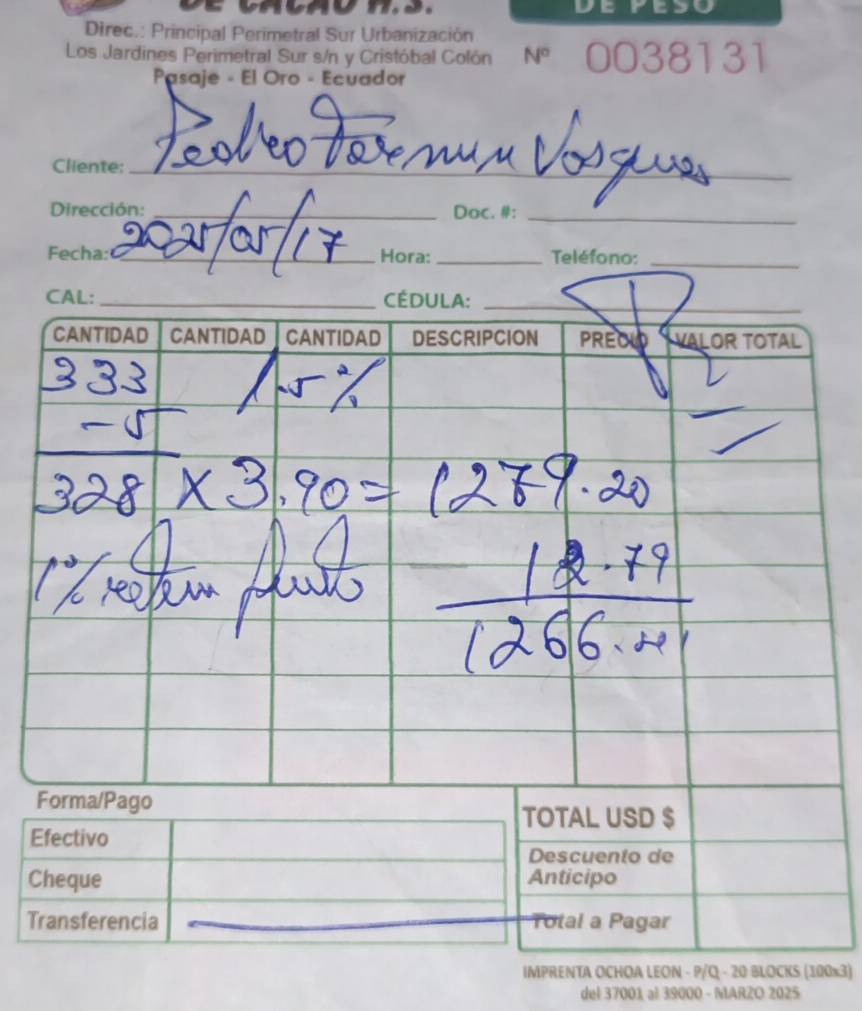 DE CACAO H.S.
DE PESO
Direc.: Principal Perimetral Sur Urbanización
Los Jardines Perimetral Sur s/n y Cristóbal Colón
Pasaje - El Oro - Ecuador
Nº 0038131
Cliente: Pedro Vasques
Dirección: Doc. #:
Fecha: 2025/05/17 Hora: Teléfono:
CAL: CÉDULA:
CANTIDAD CANTIDAD CANTIDAD DESCRIPCION PRECIO VALOR TOTAL
333 1.5%
-5
328 x 3.90 = 1279.20
1% 12.79
1266.41
Forma/Pago
Efectivo
Cheque
Transferencia
TOTAL USD $
Descuento de
Anticipo
Total a Pagar
IMPRENTA OCHOA LEON - P/Q - 20 BLOCKS (100x3)
del 37001 al 39000 - MARZO 2025